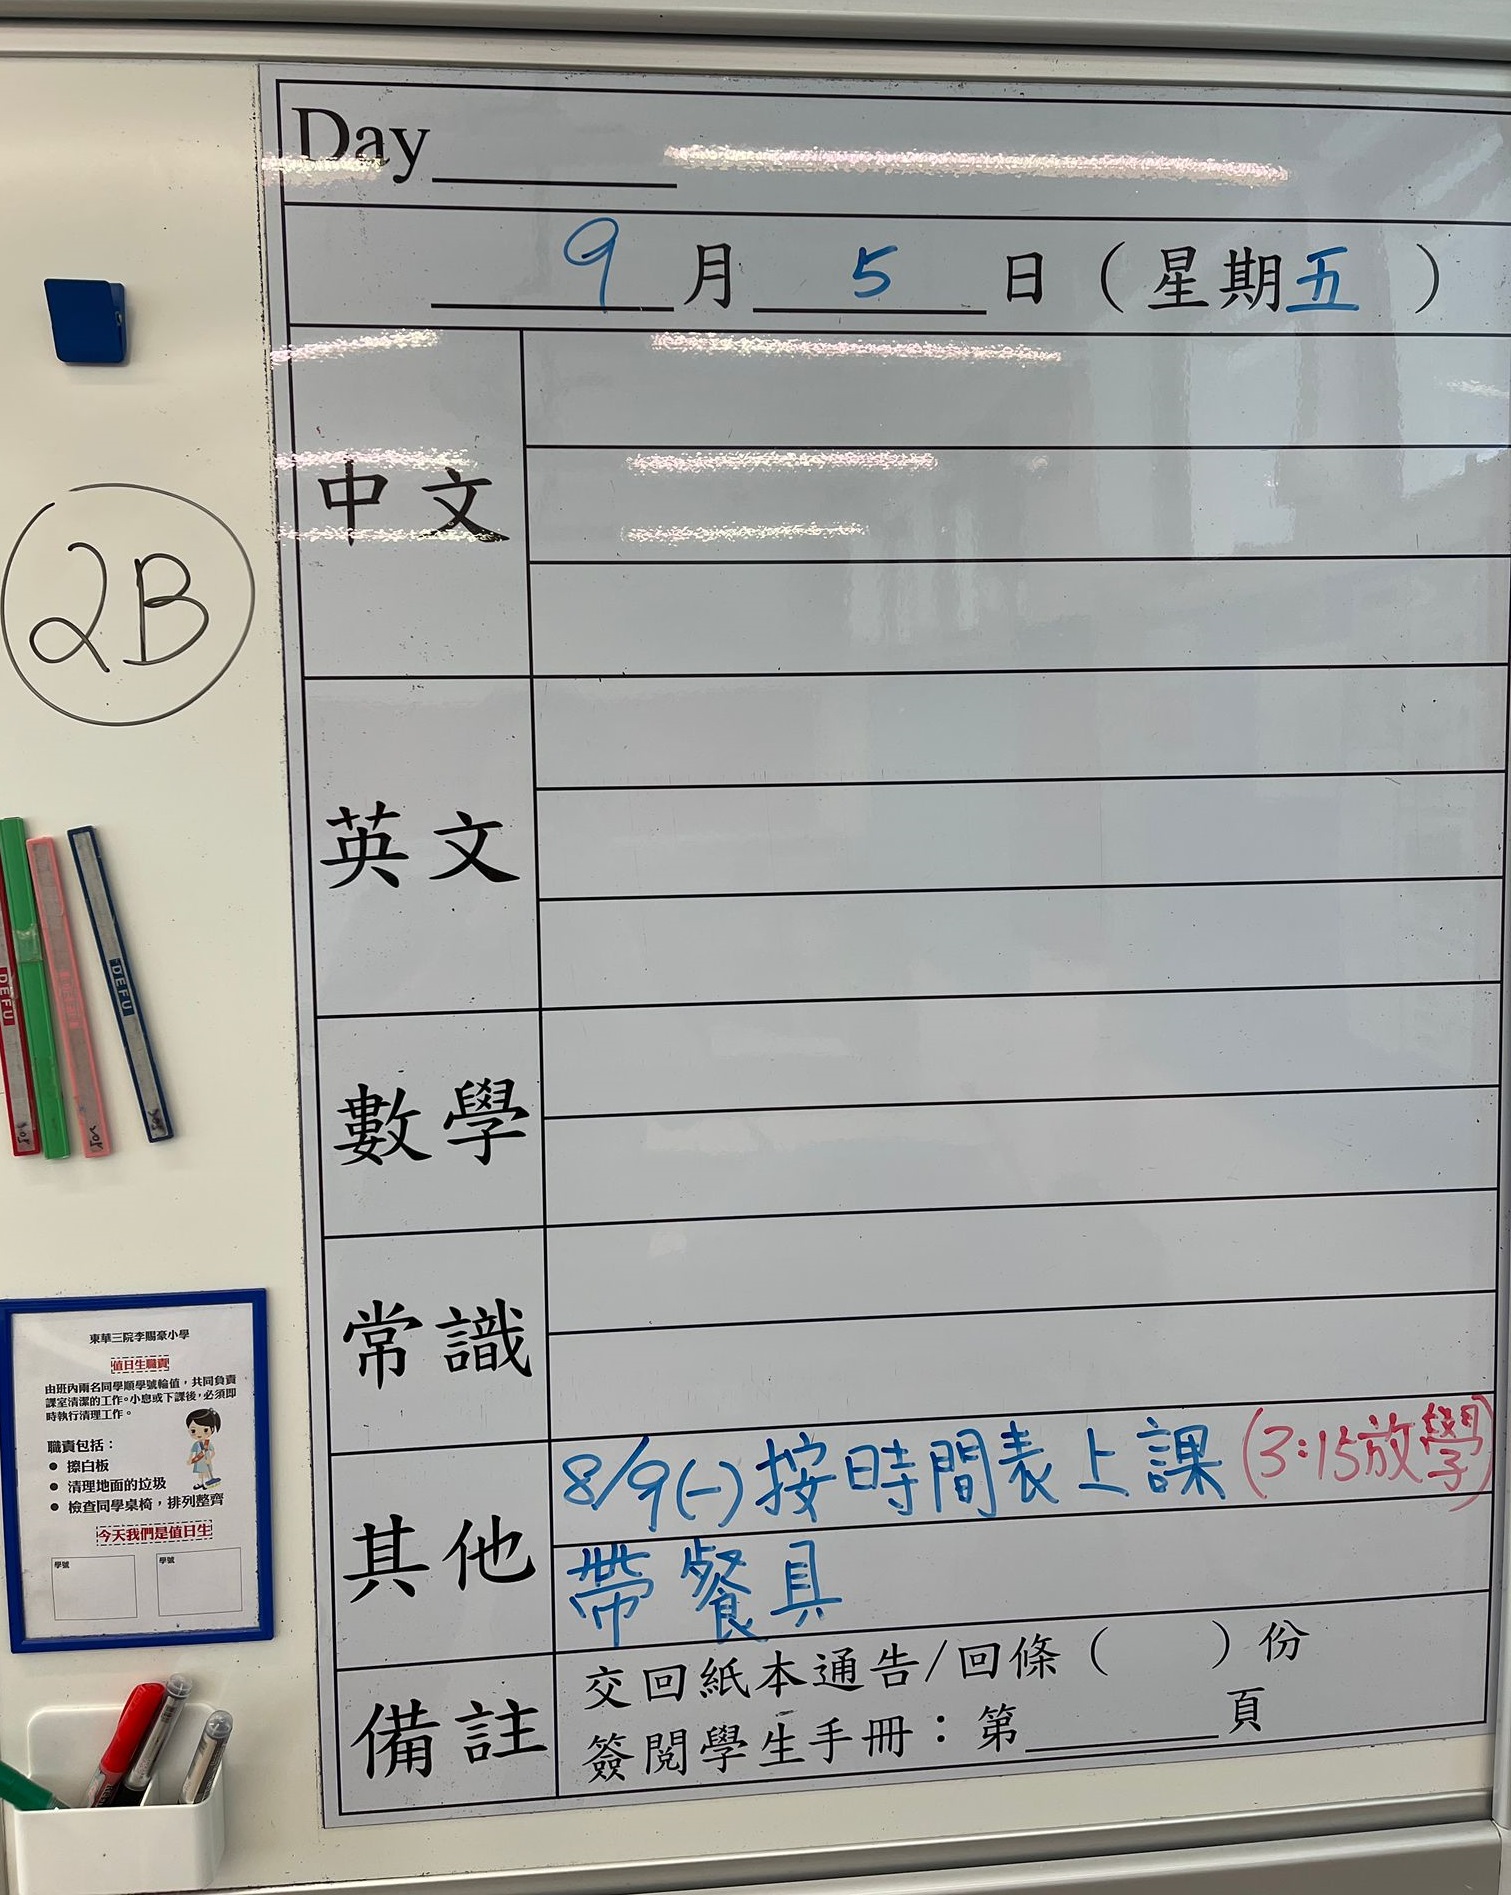 Day
9月5日(星期五)
中文
2B
英文
數學
常識
其他
8/9(一)按時間表上課(3:15放學)
帶餐具
備註
交回紙本通告/回條( )份
簽閱學生手冊:第 頁
DEFU
DEFU
東華三院李賜豪小學
值日生職責
由班內兩名同學順學號輪值,共同負責
課室清潔的工作。小息或下課後,必須即
時執行清理工作。
職責包括:
● 擦白板
● 清理地面的垃圾
● 檢查同學桌椅,排列整齊
今天我們是值日生
學號 學號